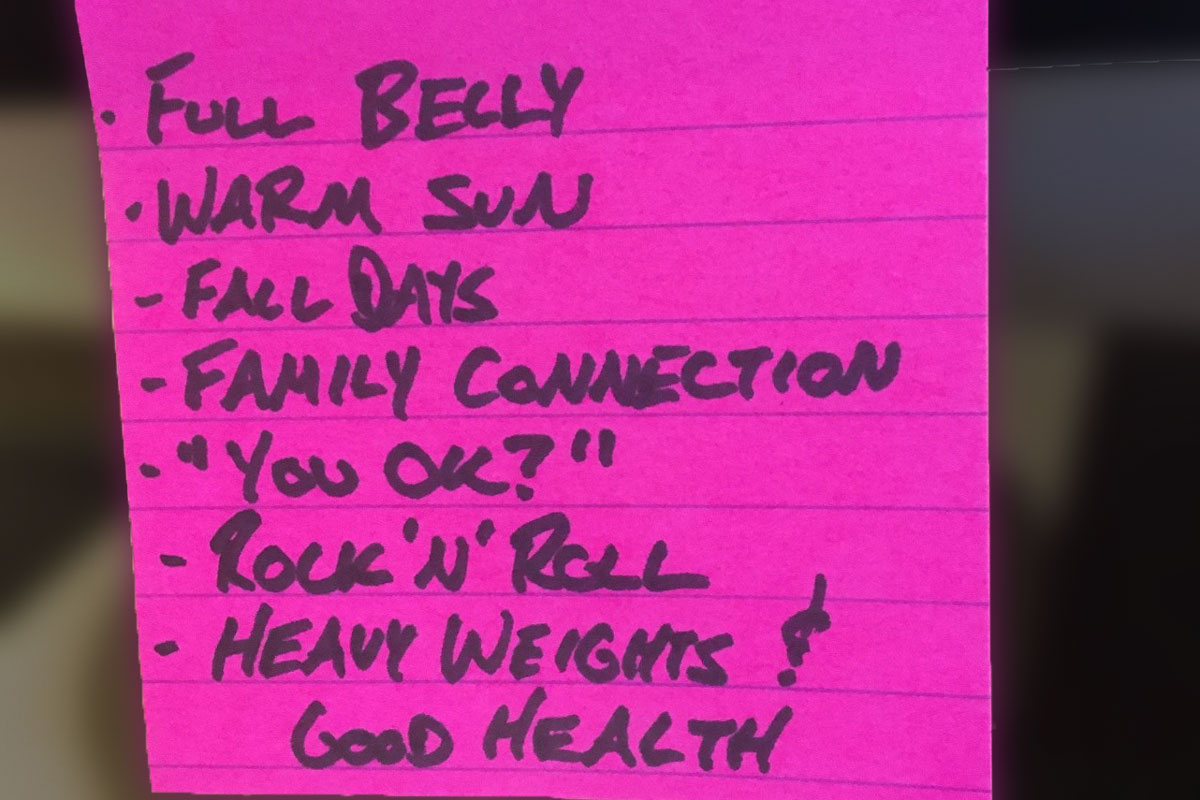 · Full Belly
· Warm Sun
- Fall Days
- Family Connection
- "You OK?"
- Rock 'n' Roll
- Heavy Weights &
Good Health